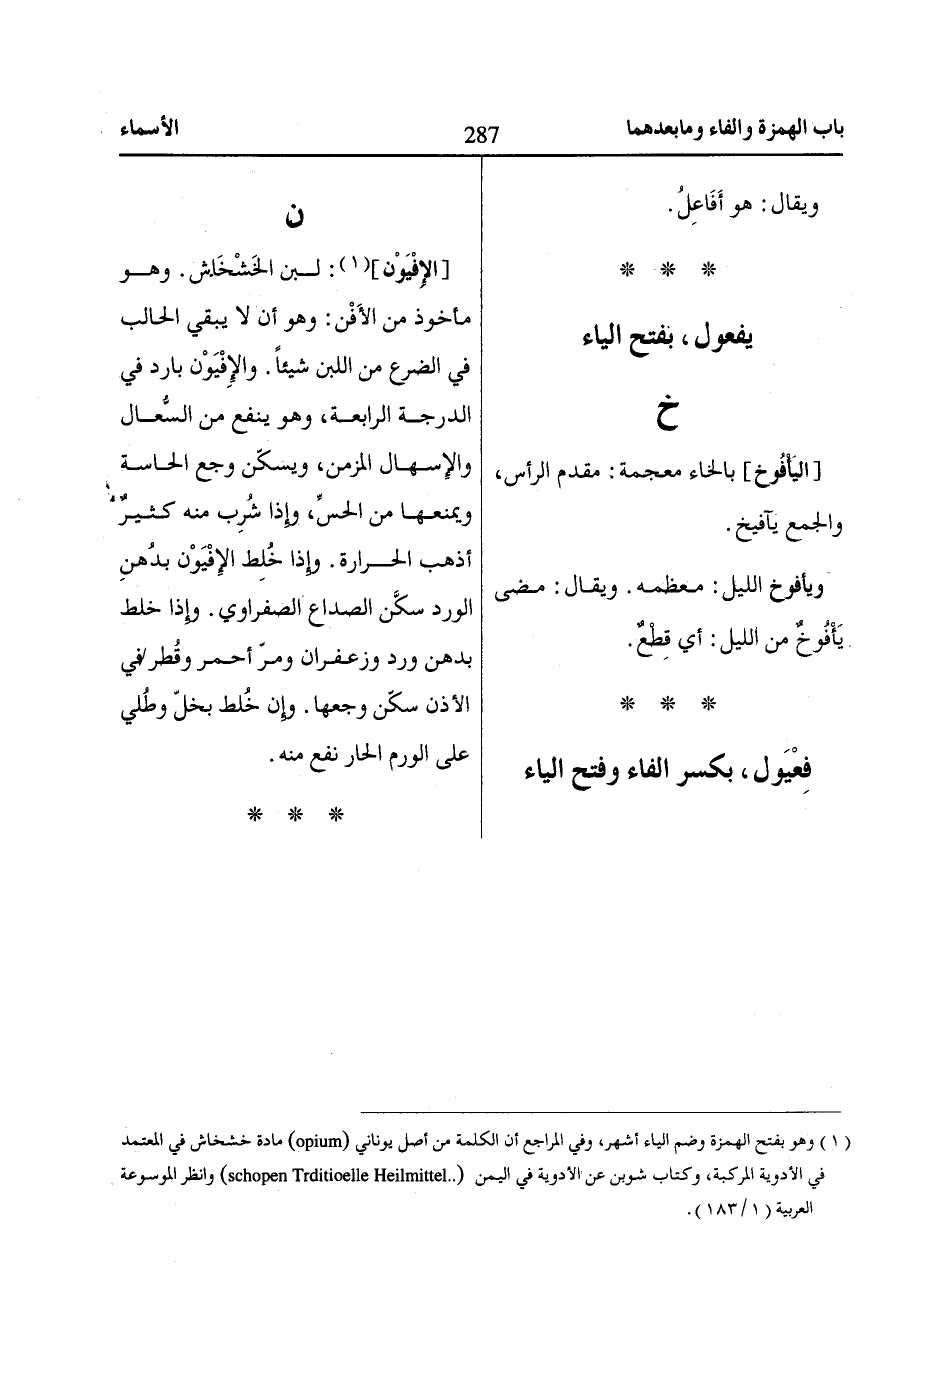 باب الهمزة والفاء ومابعدهما
287
الأسماء
ويقال: هو أَفَاعِلُ.
* * *
يفعول، بفتح الياء
خ
[اليَأْفُوخ] بالخاء معجمة: مقدم الرأس،
والجمع يآفيخ.
ويأفوخ الليل: معظمه. ويقال: مضى
يَأْفُوخٌ من الليل: أي قِطْعٌ.
* * *
فِعْيَول، بكسر الفاء وفتح الياء
ن
[الإِفْيَوْن](١): لبن الخَشْخَاش. وهو
مأخوذ من الأَفْن: وهو أن لا يبقي الحالب
في الضرع من اللبن شيئاً. والإِفْيَوْن بارد في
الدرجة الرابعة، وهو ينفع من السُّعال
والإسهال المزمن، ويسكّن وجع الحاسة
ويمنعها من الحسِّ، وإذا شُرِب منه كثيرٌ
أذهب الحرارة. وإذا خُلِط الإِفْيَوْن بدُهنِ
الورد سكَّن الصداع الصفراوي. وإذا خلط
بدهن ورد وزعفران ومرّ أحمر وقُطر في
الأذن سكّن وجعها. وإن خُلط بخلّ وطُلي
على الورم الحار نفع منه.
* * *
(١) وهو بفتح الهمزة وضم الياء أشهر، وفي المراجع أن الكلمة من أصل يوناني (opium) مادة خشخاش في المعتمد
في الأدوية المركبة، وكتاب شوبن عن الأدوية في اليمن (schopen Trditioelle Heilmittel..) وانظر الموسوعة
العربية (١/١٨٣).